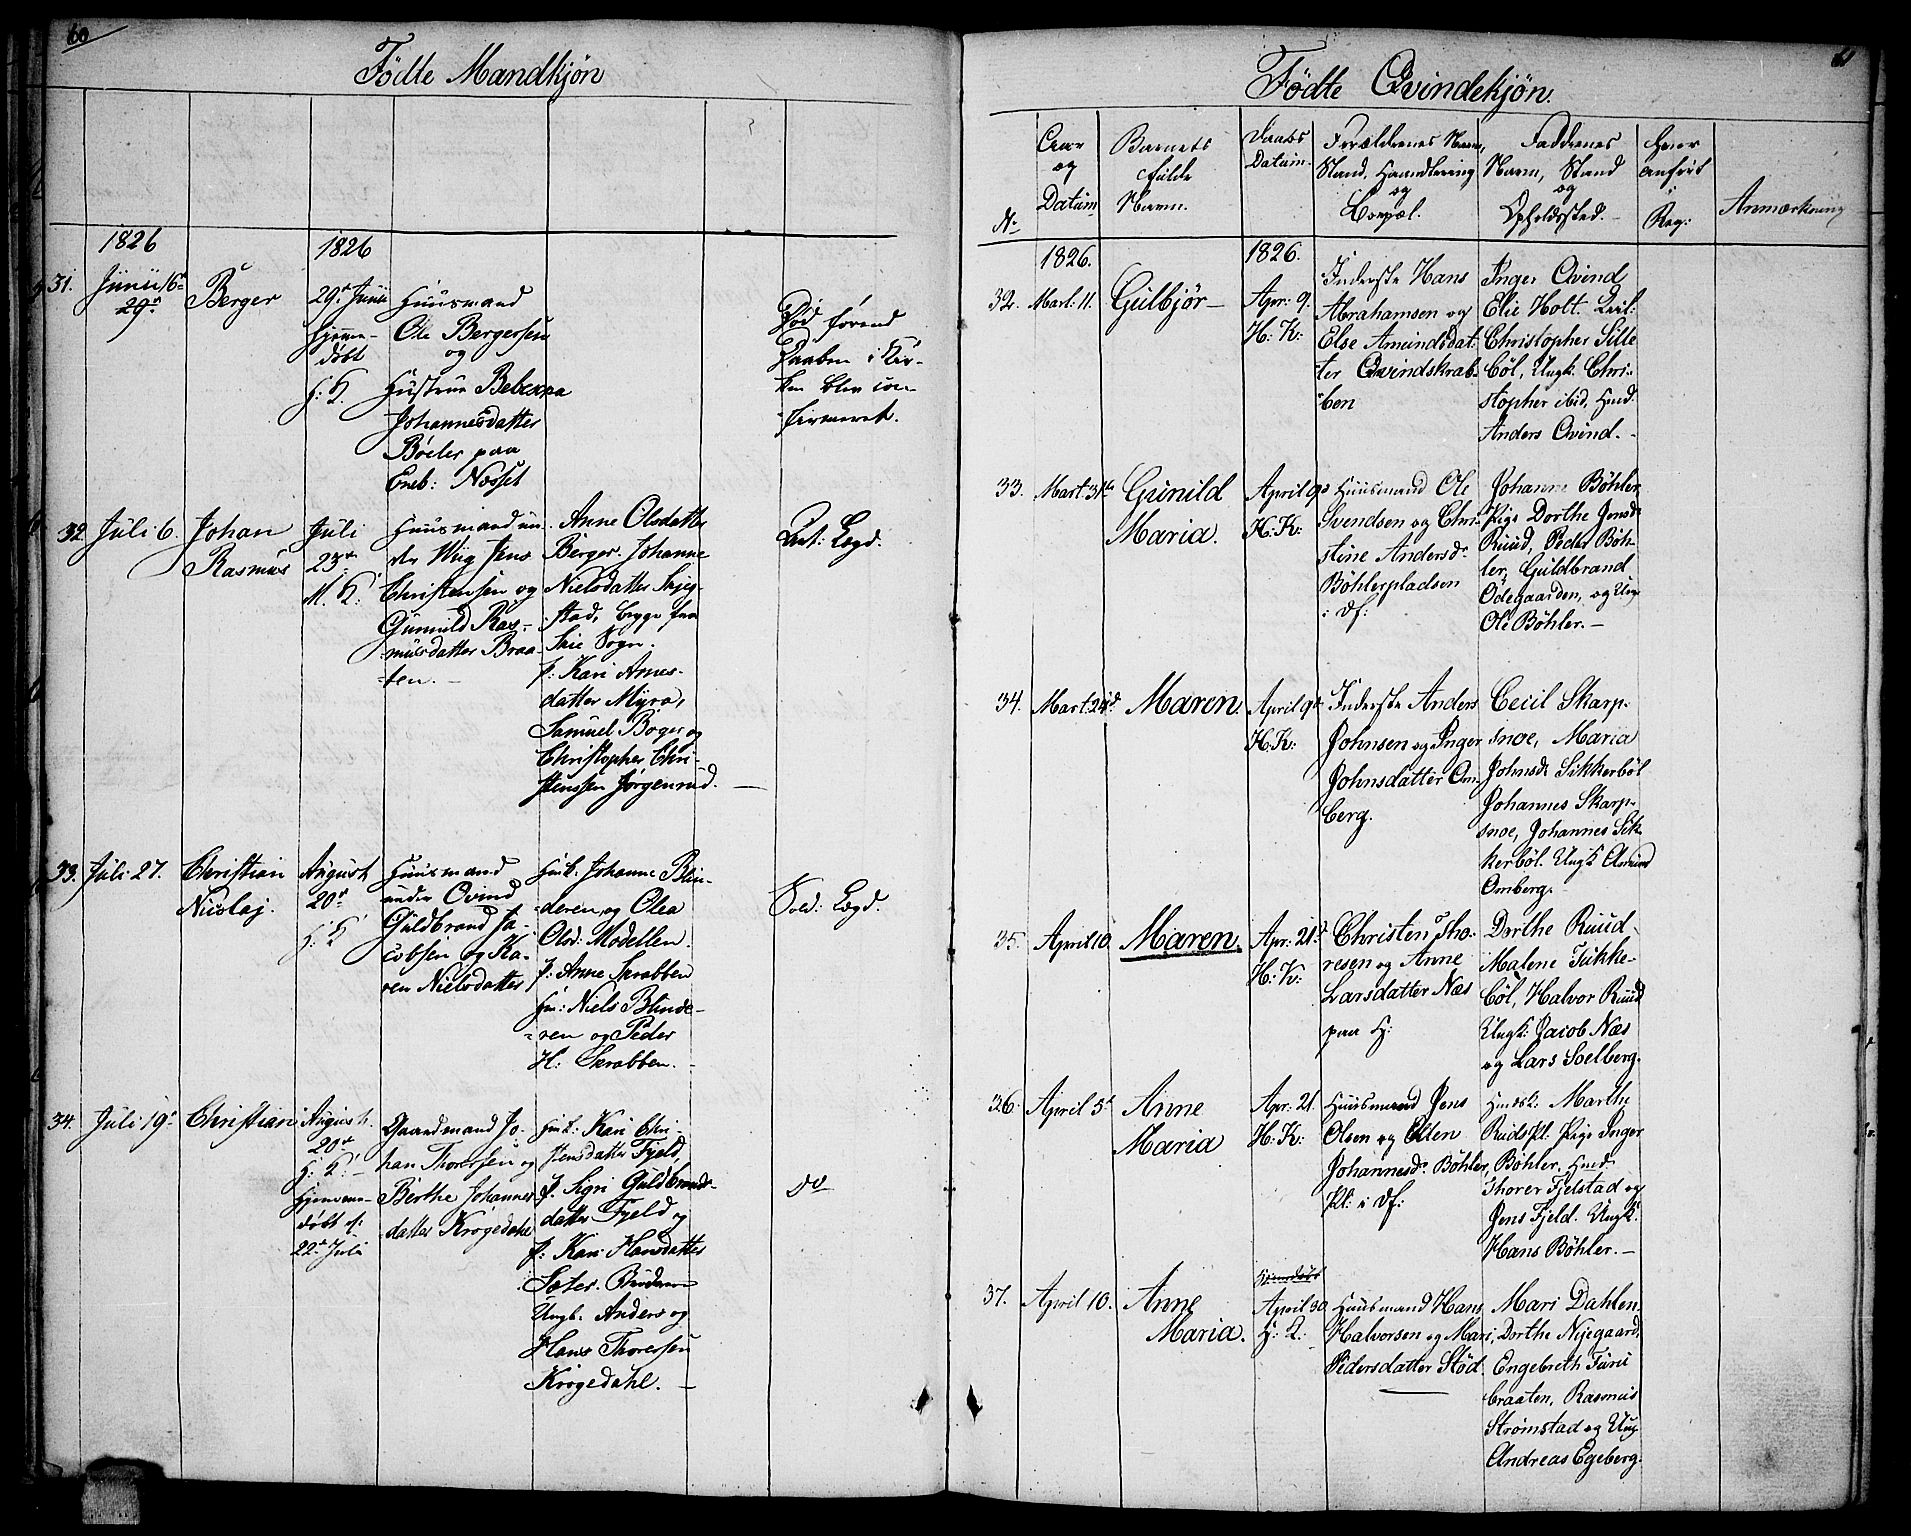 60
Födte Mandkjön
1826
1826
31.
Junii 16de
29de
Berger
29de Junii
hjemme-
døbt
H: K.
Huusmand
Ole Bergersen
og
Hustrue Bebekka
Johannesdatter
Böeler paa
Eneb: Næsset
Död förend
Daaben i Kir-
ken blev con-
firmeret.
32.
Juli 6.
Johan
Rasmus
Juli
23de
M. K:
Huusmand un-
der Wiig Jens
Christensen og
Gunnild Ras-
musdatter Braa-
ten. -
Anne Olsdatter
Berger. Johanne
Nielsdatter Skjeg-
stad, begge fra
Skie Sogn.
p: Kari Arnes-
datter Myra,
Samuel Boger og
Christopher Chri-
stenssen Jørgenrud.
Ant: Lægd.
33.
Juli 27.
Christian
Nicolaj.
August
20de
H: K
Huusmand
under Qvind
Guldbrand Ja-
cobsen og Ka-
ren Nielsdatter
Hmk. Johanne Blin-
deren, og Olea
Olsd: Modellen.
p: Anne Skrabben
Hm: Niels Blinde-
ren og Peder
H: Skrabben. -
Sold: Lægd.
34.
Juli 19de
Christian
August
20de
H: K: -
Hjemme-
døbt d:
22de Juli
Gaardmand Jo-
han Thoresen og
Berthe Johannes-
datter Krogedahl
Hmk: Kari Chri-
stensdatter Fjeld,
p. Sigri Guldbrands-
datter Fjeld og
p: Kari Hansdatter
Sæter. Brødrene
Ungk. Anders og
Hans Thoresen
Krogedahl. -
do
61
Födte Qvindekjön.
No
Aar
og
Datum
Barnets
fulde
Navn.
Daabs
Datum.
Forældrenes Navn,
Stand, Haandtering
og
Boepæl.
Faddernes
Navn, Stand
og
Opholdssted. -
Hvor
anført
Reg:
Anmærkning
1826.
1826.
32.
Mart: 11.
Gulbjör -
Apr: 9.
H: K:
Inderste Hans
Abrahamsen og
Else Amundsdat-
ter Qvindskrab-
ben
Inger Qvind
Elie Holt.
Christopher Sitte
böl, Ungk: Chri-
stopher ibid, Hmd.
Anders Qvind. -
33.
Mart: 31te
Gunild
Maria.
April 9de
H. K:
Huusmand Ole
Svendsen og Chri-
stine Andersdr
Böhlerpladsen
i Df:
Johanne Böhler
Pige Dorthe Jensdr
Ruud, Peder Böh-
ler, Guldbrand
Ödegaarden, og Ung
Ole Böhler. -
34.
Mart: 24d.
Maren.
April 9d
H: K:
Inderste Anders
Johnsen og Inger
Johnsdatter Om-
berg.
Cecil Skarp-
snoe, Maria
Johnsdr Sikkerböl
Johannes Skarp-
snoe, Johannes Sik-
kerböl. Ungk. Amund
Omberg. -
35.
April 10.
Maren.
Apr: 21d
H: K:
Christen Tho-
resen og Anne
Larsdatter Næs
paa H:
Dorthe Ruud
Malene Tukke-
böl, Halvor Ruud
Ungk: Jacob Næs
og Lars Soelberg.
36.
April 5d
Anne
Maria
Apr: 21.
H: K:
Huusmand Jens
Olsen og Ellen
Johannesdr: Böhler
Pl: i Df:
Hmdsk: Marthe
Rudspl: Pige Inger
Böhler. Hmd.
Thorer Fjelstad og
Jens Fjeld. Ungk:
Hans Böhler. -
37.
April 10.
Anne
Maria.
Hjemdøbt
April 30
H: K:
Huusmand Hans
Halvorsen og Mari
Pedersdatter Stöd.
Mari Dahlen.
Dorthe Nijegaard,
Engebreth Furu
braaten, Rasmus
Strømstad og Ung
Andreas Egeberg.